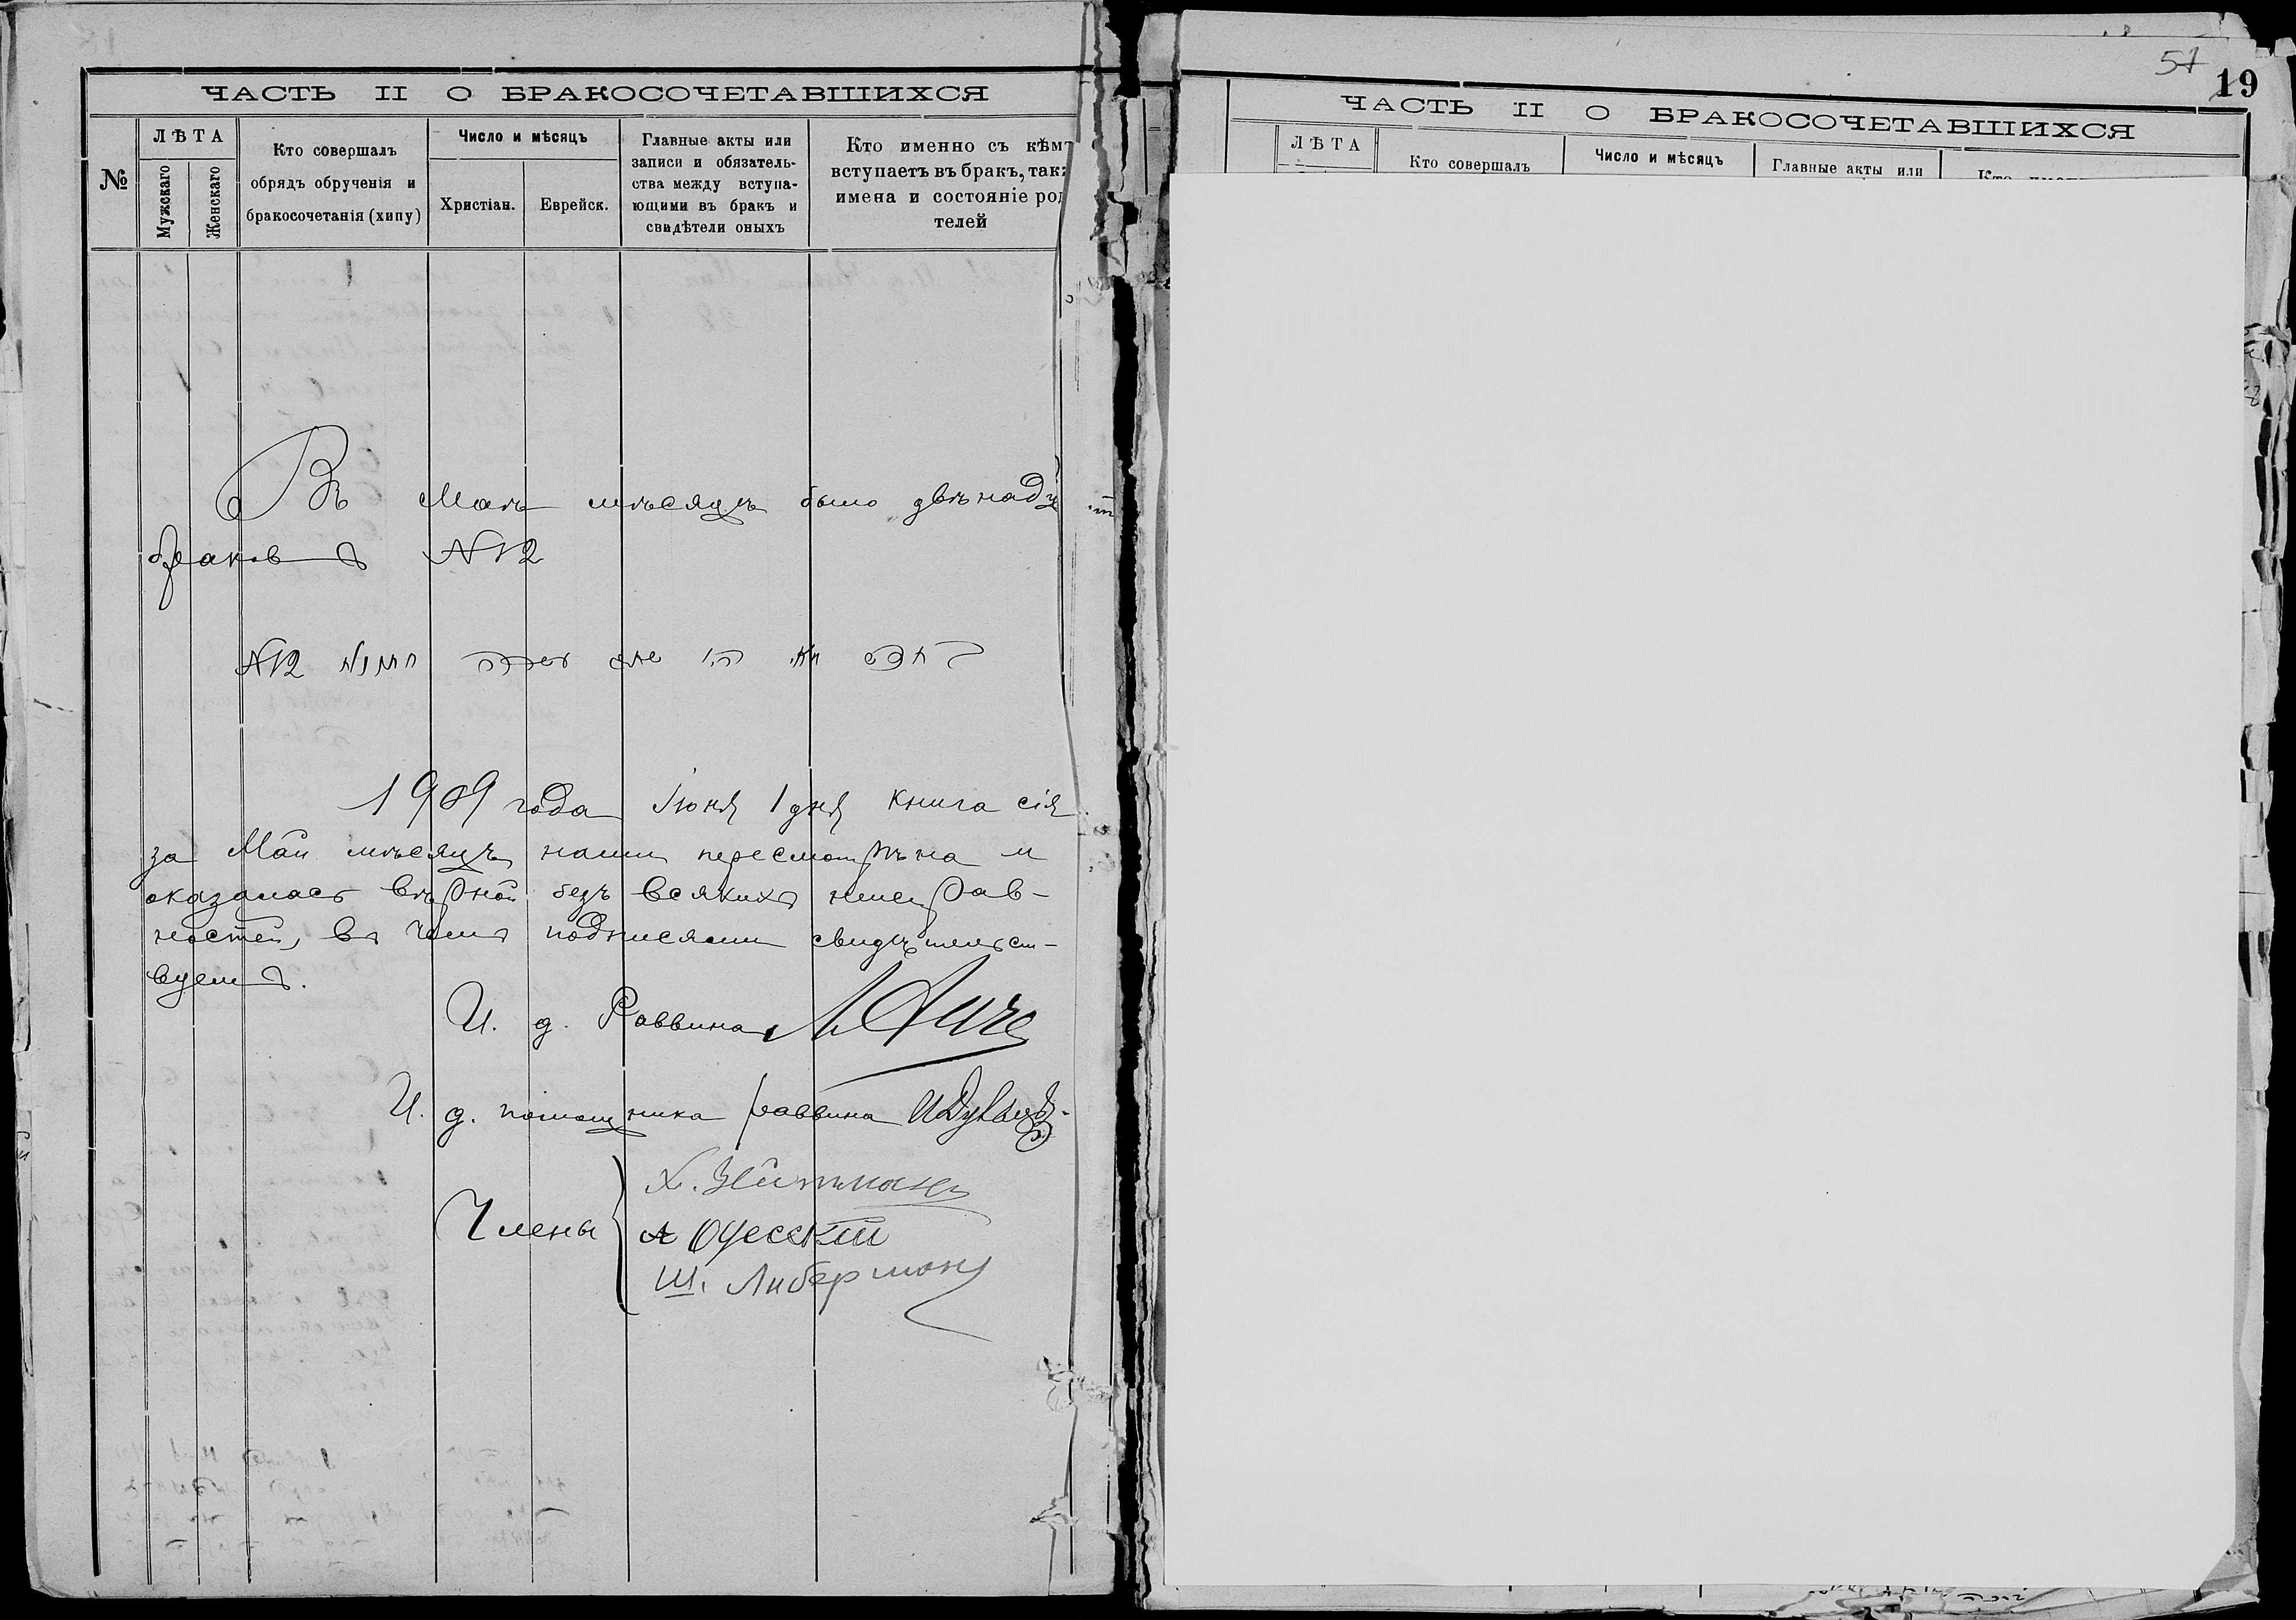 ЧАСТЬ II О БРАКОСОЧЕТАВШИХСЯ
№
ЛѢТА
Мужскаго
Женскаго
Кто совершалъ
обрядъ обрученія и
бракосочетанія (хипу)
Число и мѣсяцъ
Христіан.
Еврейск.
Главные акты или
записи и обязатель-
ства между вступа-
ющими въ бракъ и
свидѣтели оныхъ
Кто именно съ кѣмъ
вступаетъ въ бракъ, так
имена и состояніе ро
телей
Въ Маѣ мѣсяцѣ было двѣнадц
браковъ №12
№12
1909 года Іюня 1 дня книга сія
за Май мѣсяцъ нами пересмотрѣна и
оказалась вѣрной безъ всякихъ неисправ-
ностей, въ чемъ подписями свидѣтельст-
вуемъ.
И. д. Раввина
И. д. помощника раввина
Члены
Х. Зейтманъ
А Одесскій
Ш. Либерманъ
57
19
ЧАСТЬ II О БРАКОСОЧЕТАВШИХСЯ
ЛѢТА
Кто совершалъ
Число и мѣсяцъ
Главные акты или